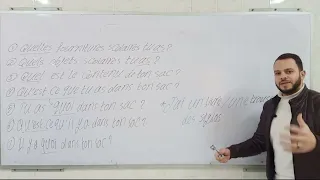 ① Quelles fournitures scolaires tu as ?
② Quels objets scolaires tu as ?
③ Quel est le contenu de ton sac ?
④ Qu'est ce que tu as dans ton sac ?
⑤ Tu as quoi dans ton sac ?
⑥ Qu'est ce qu'il y a dans ton sac
⑦ Il y a quoi dans ton sac ?
un livre / une
des